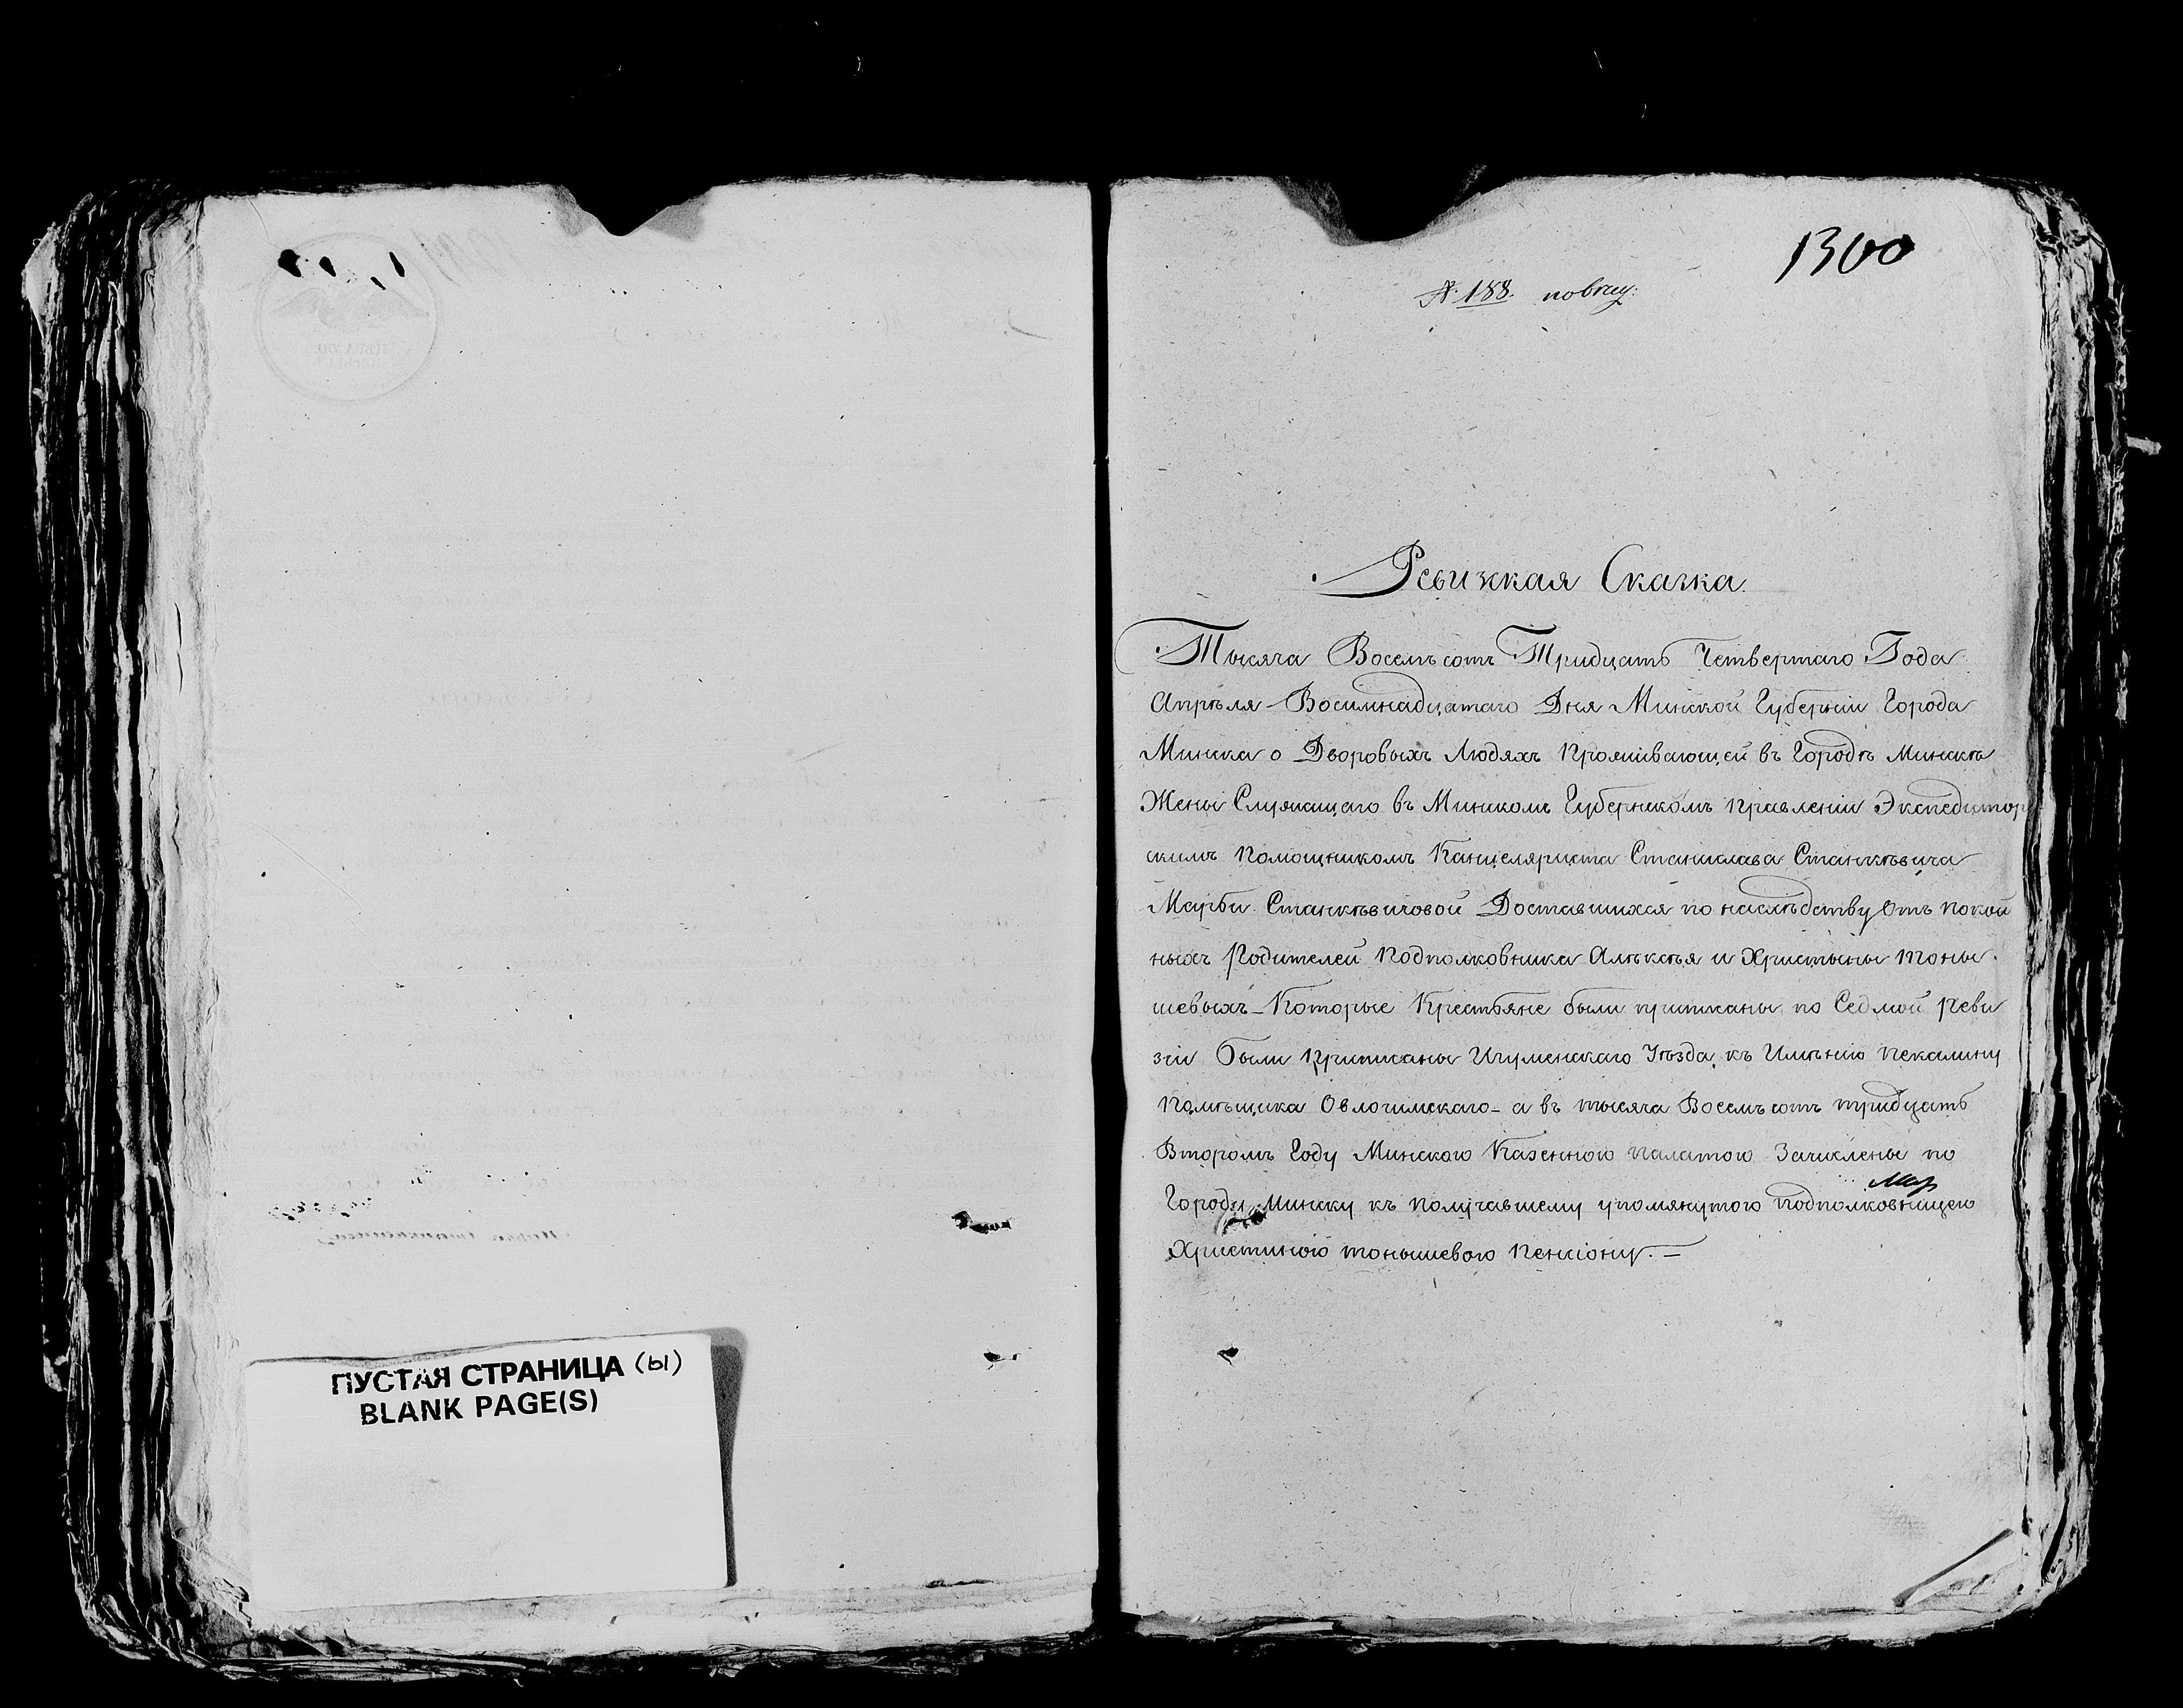 1300
№ 188. повѣт:
Ревизкая Сказка.
Тысяча Восемъсотъ Тридцать Четвертаго Года
Апрѣля Восимнадцатаго Дня Минской Губерніи Города
Минска о Дворовыхъ Людяхъ Проживающей въ Городѣ Минскѣ
Жены Служащаго въ Минскомъ Губернскомъ Правленіи Экспедитор
скимъ Помощникомъ Канцеляриста Станислава Станкѣвича
Марби Станкѣвичовой Доставшихся по наслѣдству Отъ покой
ныхъ Родителей Подполковника Алѣксѣя и Христыны Тоны
шевыхъ Которые Крестьяне были приписаны по Седмой Реви
зіи были Приписаны Игуменскаго Уѣзда къ Имѣнію Пекалину
Помѣщика Овлочимскаго а въ тысяча Восемъсотъ тридцать
Второмъ Году Минскою Казенною палатою Зачислены по
Городу Минску къ Получавшему упомянутою Подполковницею
Христиною тонышевою Пенсіону. —
ПУСТАЯ СТРАНИЦА (ы)
BLANK PAGE(S)